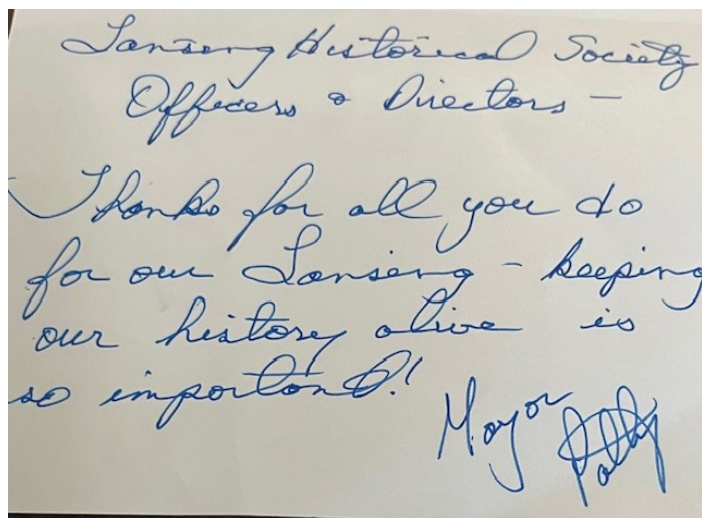 Lansing Historical Society
Officers & Directors —
Thanks for all you do
for our Lansing - keeping
our history alive is
so important!
Mayor
Patty